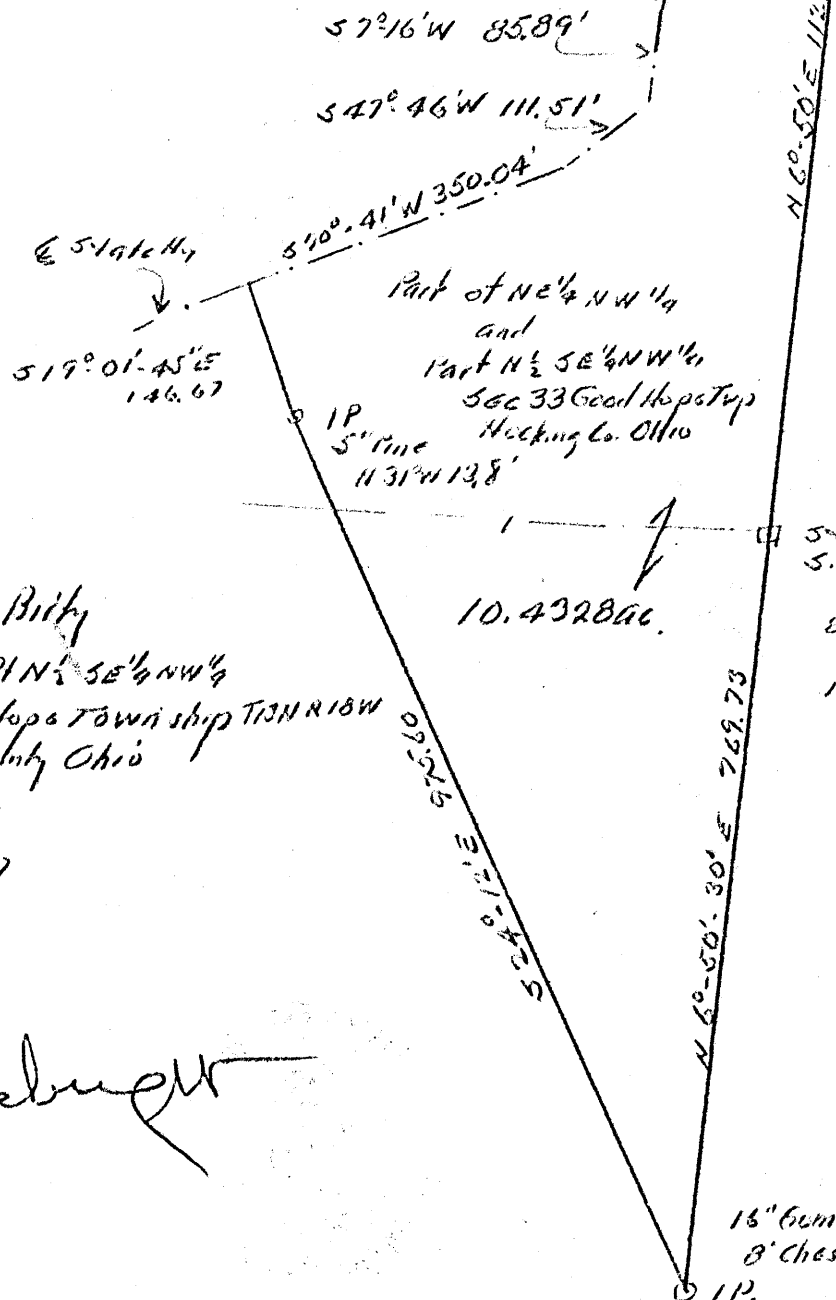 S 7° 16' W 85.89'
S 47° 46' W 111.51'
S 70° 41' W 350.04'
N 6° - 50' E 112
℄ State Hy
S 19° 01' - 45" E
146.67
Part of NE 1/4 NW 1/4
and
Part N 1/2 SE 1/4 NW 1/4
Sec 33 Good Hope Twp
Hocking Co. Ohio
IP
5" Pine
N 31° W 13.8'
10.4328 ac.
N 1/2 SE 1/4 NW 1/4
Township T13N R18W
Ohio
S 24° - 12' E 975.60
N 6° - 50' - 30" E 769.73
16" Gum
8" Ches
IP.